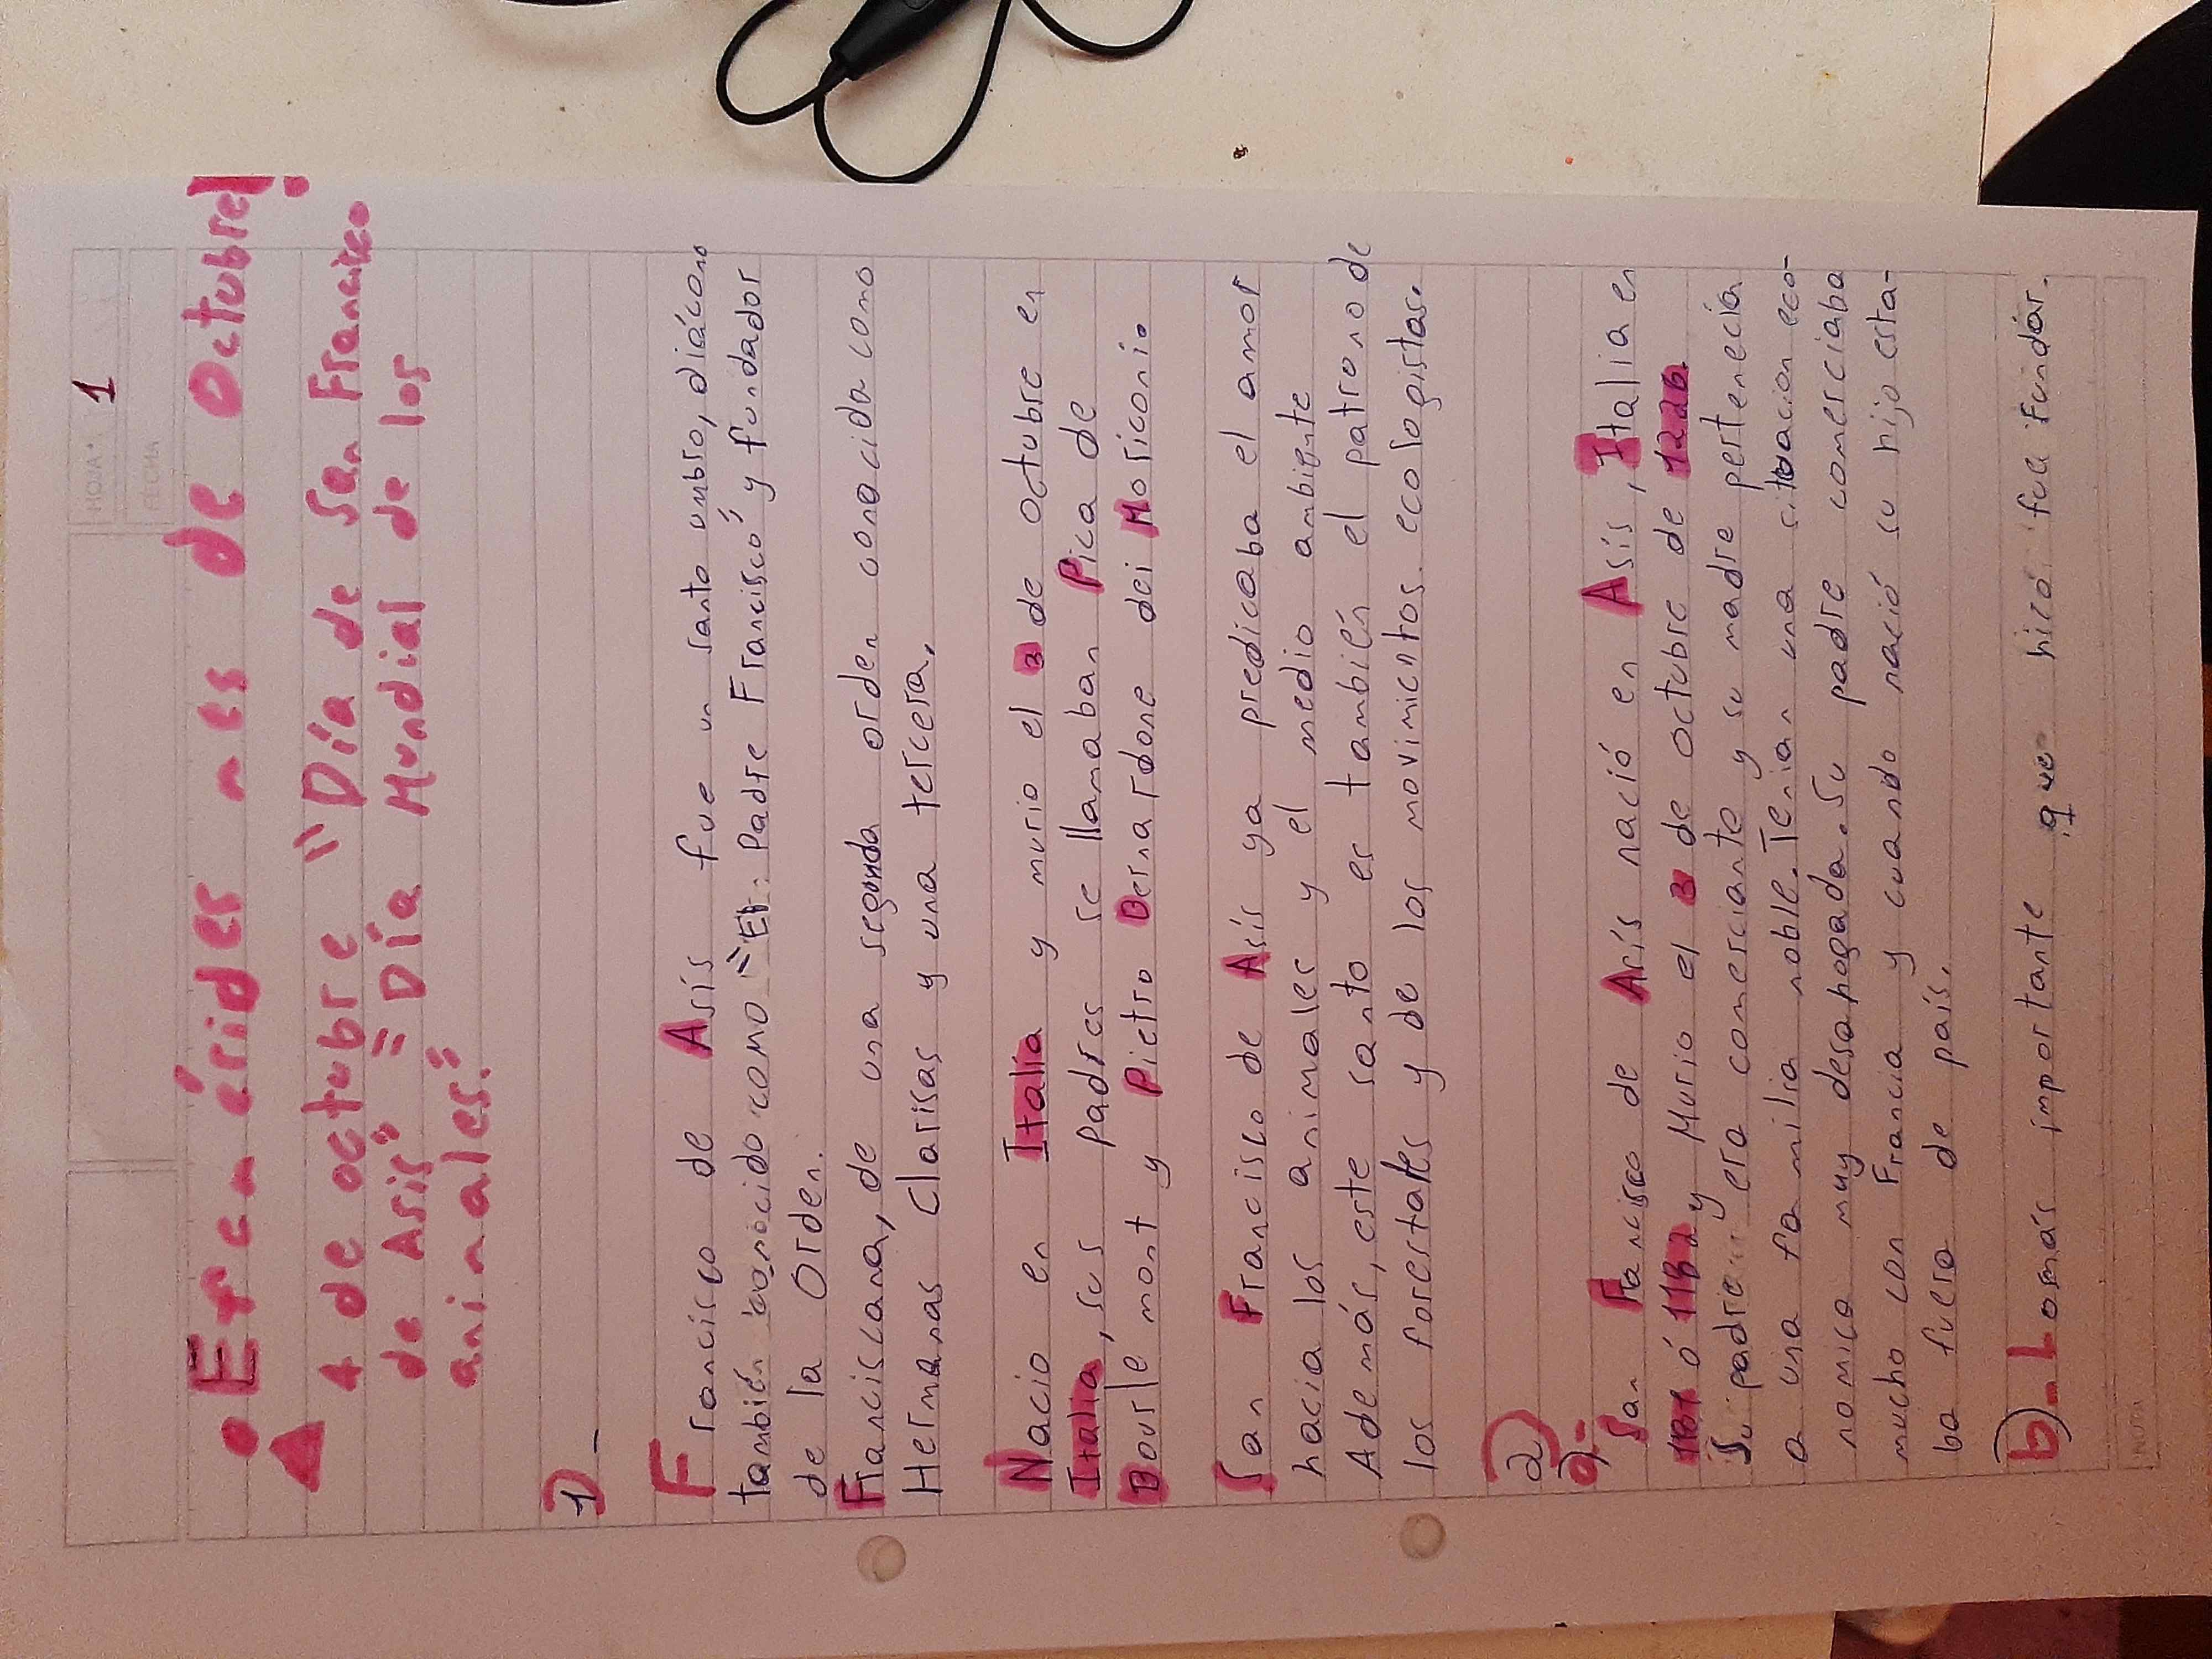 HOJA N° 1
FECHA
• Efemérides mes de Octubre!
4 de octubre "Día de San Francisco
de Asis" "Día Mundial de los
animales."
1)_
Francisco de Asís fue un santo umbro, diácono
también conocido como "El: Padre Francisco" y fundador
de la Orden.
Franciscana, de una segunda orden conocida como
Hermanas Clarisas y una tercera.
Nacio en Italia y murio el 3 de octubre en
Italia, sus padres se llamaban Pica de
Bourlemont y Pietro Bernardone dei Moriconi.
San Francisco de Asís ya predicaba el amor
hacia los animales y el medio ambiente
Además, este santo es también el patrono de
los forestales y de los movimientos ecologistas.
2)
a-
San Francisco de Asís nació en Asís, Italia en
1181 ó 1182 y Murio el 3 de octubre de 1226
Su padre era comerciante y su madre pertenecía
a una familia noble. Tenian una situacion eco-
nomica muy desahogada. Su padre comerciaba
mucho con Francia y cuando nació su hijo esta-
ba fuera de país.
b)_Lo más importante que hizó fue fundar.
NOTA